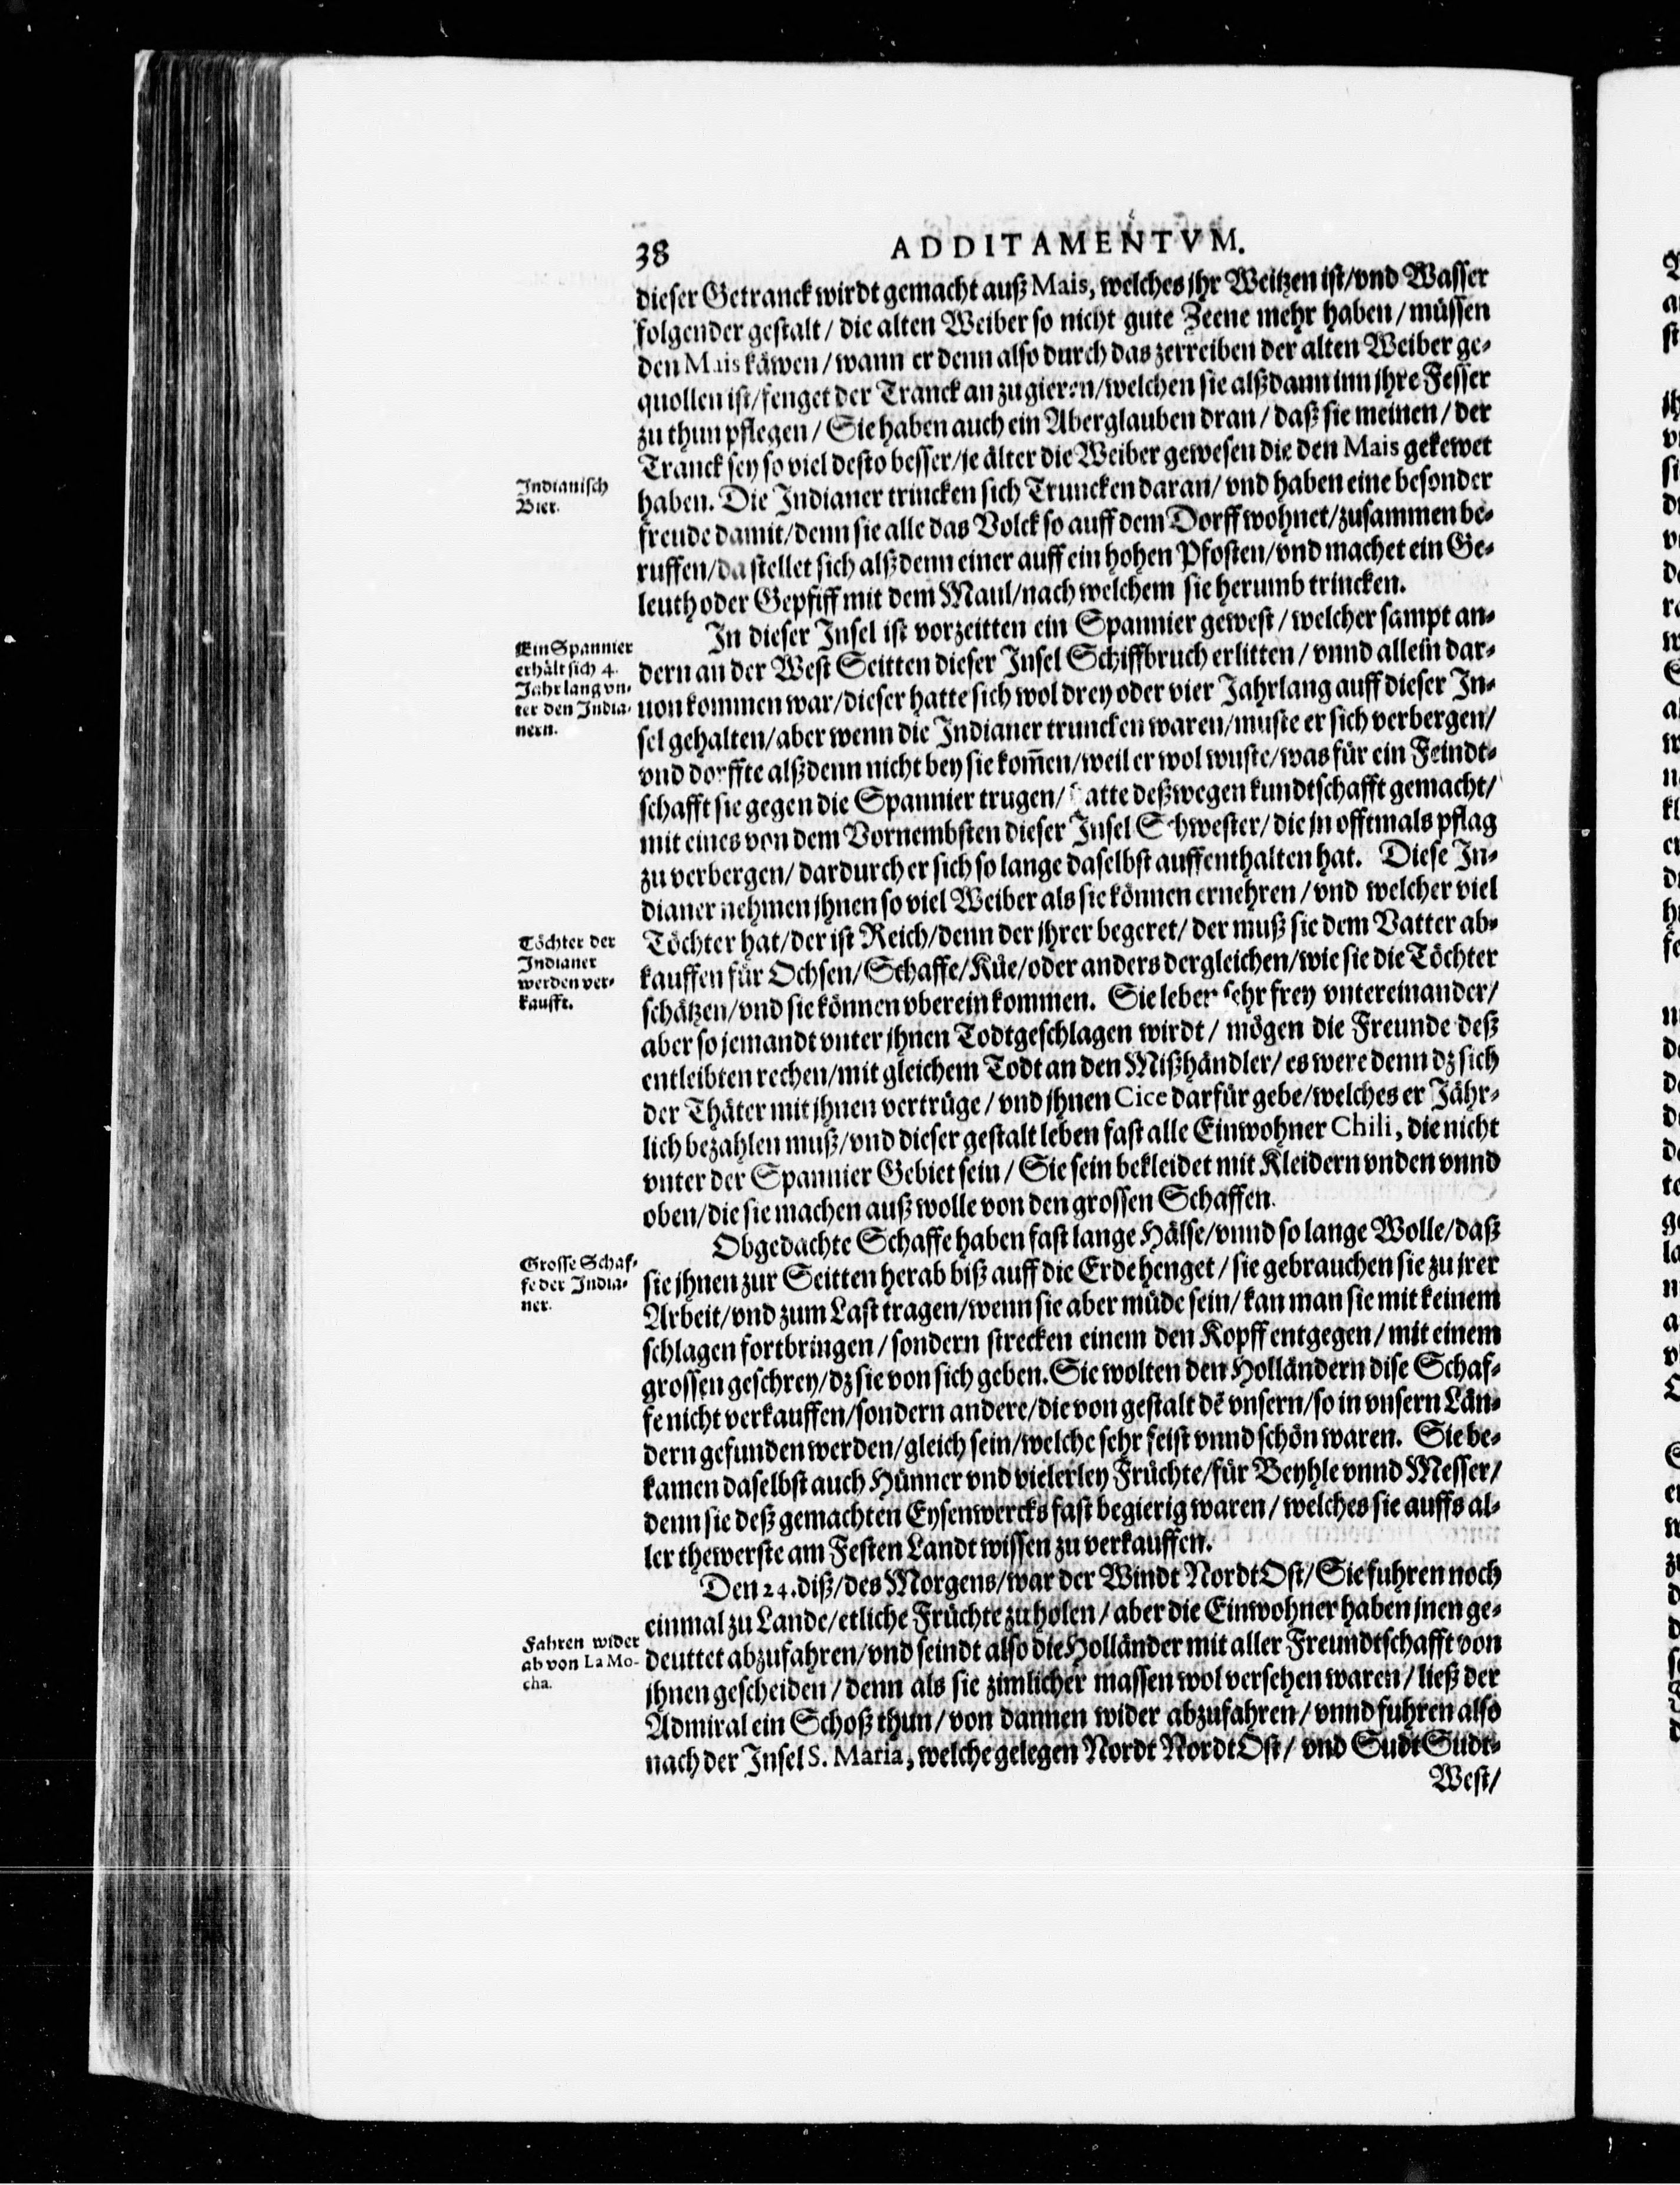 38
ADDITAMENTVM.
dieser Getranck wirdt gemacht auß Mais, welches jhr Weitzen ist/vnd Wasser
folgender gestalt/ die alten Weiber so nicht gute Zeene mehr haben/ müssen
den Mais käwen/ wann er denn also durch das zerreiben der alten Weiber ge-
quollen ist/ fenget der Tranck an zu gieren/welchen sie alßdann inn jhre Fesser
zu thun pflegen/ Sie haben auch ein Aberglauben dran/ daß sie meinen/ der
Tranck sey so viel desto besser/ je älter die Weiber gewesen die den Mais gekewet
Indianisch
Bier.
haben. Die Indianer trincken sich Truncken daran/ vnd haben eine besonder
freude damit/denn sie alle das Volck so auff dem Dorff wohnet/zusammen be-
ruffen/da stellet sich alßdenn einer auff ein hohen Pfosten/vnd machet ein Ge-
leuth oder Gepfiff mit dem Maul/nach welchem sie herumb trincken.
In dieser Insel ist vorzeitten ein Spannier gewest/ welcher sampt an-
Ein Spannier
erhält sich 4.
Jahr lang vn-
ter den India-
nern.
dern an der West Seitten dieser Insel Schiffbruch erlitten/ vnnd allein dar-
uon kommen war/dieser hatte sich wol drey oder vier Jahrlang auff dieser In-
sel gehalten/aber wenn die Indianer truncken waren/muste er sich verbergen/
vnd dorffte alßdenn nicht bey sie kom̃en/weil er wol wuste/was für ein Feindt-
schafft sie gegen die Spannier trugen/ hatte deßwegen kundtschafft gemacht/
mit eines von dem Vornembsten dieser Insel Schwester/ die jn offtmals pflag
zu verbergen/ dardurch er sich so lange daselbst auffenthalten hat. Diese In-
dianer nehmen jhnen so viel Weiber als sie können ernehren/ vnd welcher viel
Töchter der
Indianer
werden ver-
kaufft.
Töchter hat/der ist Reich/denn der jhrer begeret/ der muß sie dem Vatter ab-
kauffen für Ochsen/Schaffe/Küe/oder anders dergleichen/wie sie die Töchter
schätzen/vnd sie können vberein kommen. Sie leben sehr frey vntereinander/
aber so jemandt vnter jhnen Todtgeschlagen wirdt/ mögen die Freunde deß
entleibten rechen/mit gleichem Todt an den Mißhändler/ es were denn dz sich
der Thäter mit jhnen vertrüge/ vnd jhnen Cice darfür gebe/welches er Jähr-
lich bezahlen muß/vnd dieser gestalt leben fast alle Einwohner Chili, die nicht
vnter der Spannier Gebiet sein/ Sie sein bekleidet mit Kleidern vnden vnnd
oben/die sie machen auß wolle von den grossen Schaffen.
Obgedachte Schaffe haben fast lange Hälse/vnnd so lange Wolle/daß
Grosse Schaf-
fe der India-
ner.
sie jhnen zur Seitten herab biß auff die Erde henget/ sie gebrauchen sie zu jrer
Arbeit/vnd zum Last tragen/wenn sie aber müde sein/ kan man sie mit keinem
schlagen fortbringen/ sondern strecken einem den Kopff entgegen/ mit einem
grossen geschrey/dz sie von sich geben. Sie wolten den Holländern dise Schaf-
fe nicht verkauffen/sondern andere/die von gestalt dẽ vnsern/so in vnsern Län-
dern gefunden werden/gleich sein/welche sehr feist vnnd schön waren. Sie be-
kamen daselbst auch Hünner vnd vielerley Früchte/für Beyhle vnnd Messer/
denn sie deß gemachten Eysenwercks fast begierig waren/ welches sie auffs al-
ler thewerste am Festen Landt wissen zu verkauffen.
Den 24. diß/des Morgens/war der Windt NordtOst/ Sie fuhren noch
einmal zu Lande/etliche Früchte zu holen/ aber die Einwohner haben jnen ge-
Fahren wider
ab von La Mo-
cha.
deuttet abzufahren/vnd seindt also die Holländer mit aller Freundtschafft von
jhnen gescheiden/ denn als sie zimlicher massen wol versehen waren/ ließ der
Admiral ein Schoß thun/ von dannen wider abzufahren/ vnnd fuhren also
nach der Insel S. Maria, welche gelegen Nordt NordtOst/ vnd SudtSudt-
West/